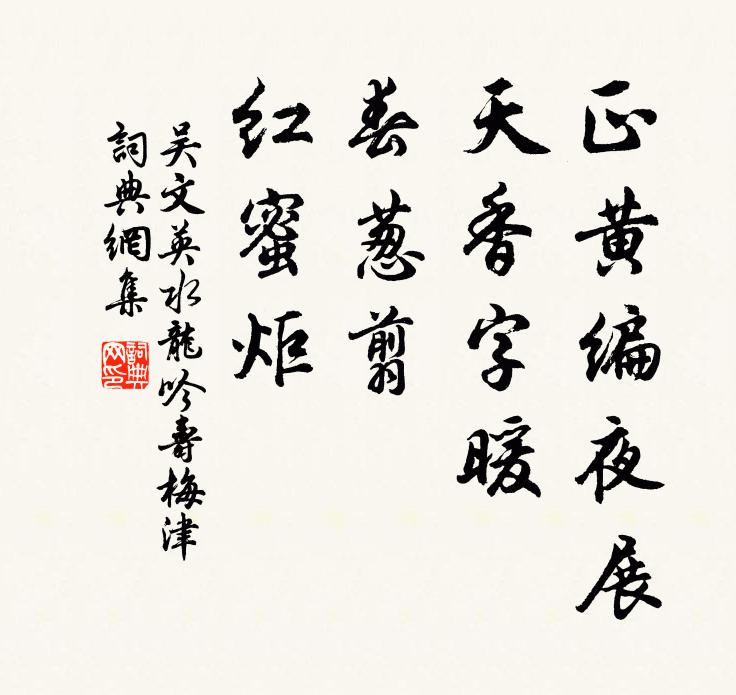 正黄编夜展
天香字暖
春葱剪
红蜜炬
吴文英水龍吟壽梅津
詞典網集
詞典网印